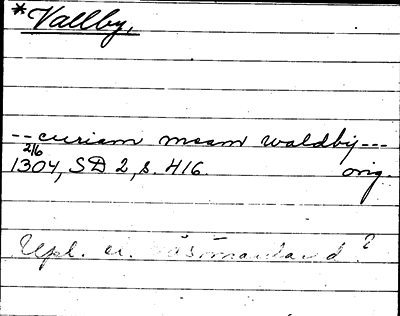 *Vallby,
-- curiam meam waldby ---
2/6
1304, SD 2, s. 416. orig.
Upl. el. Västmanland?